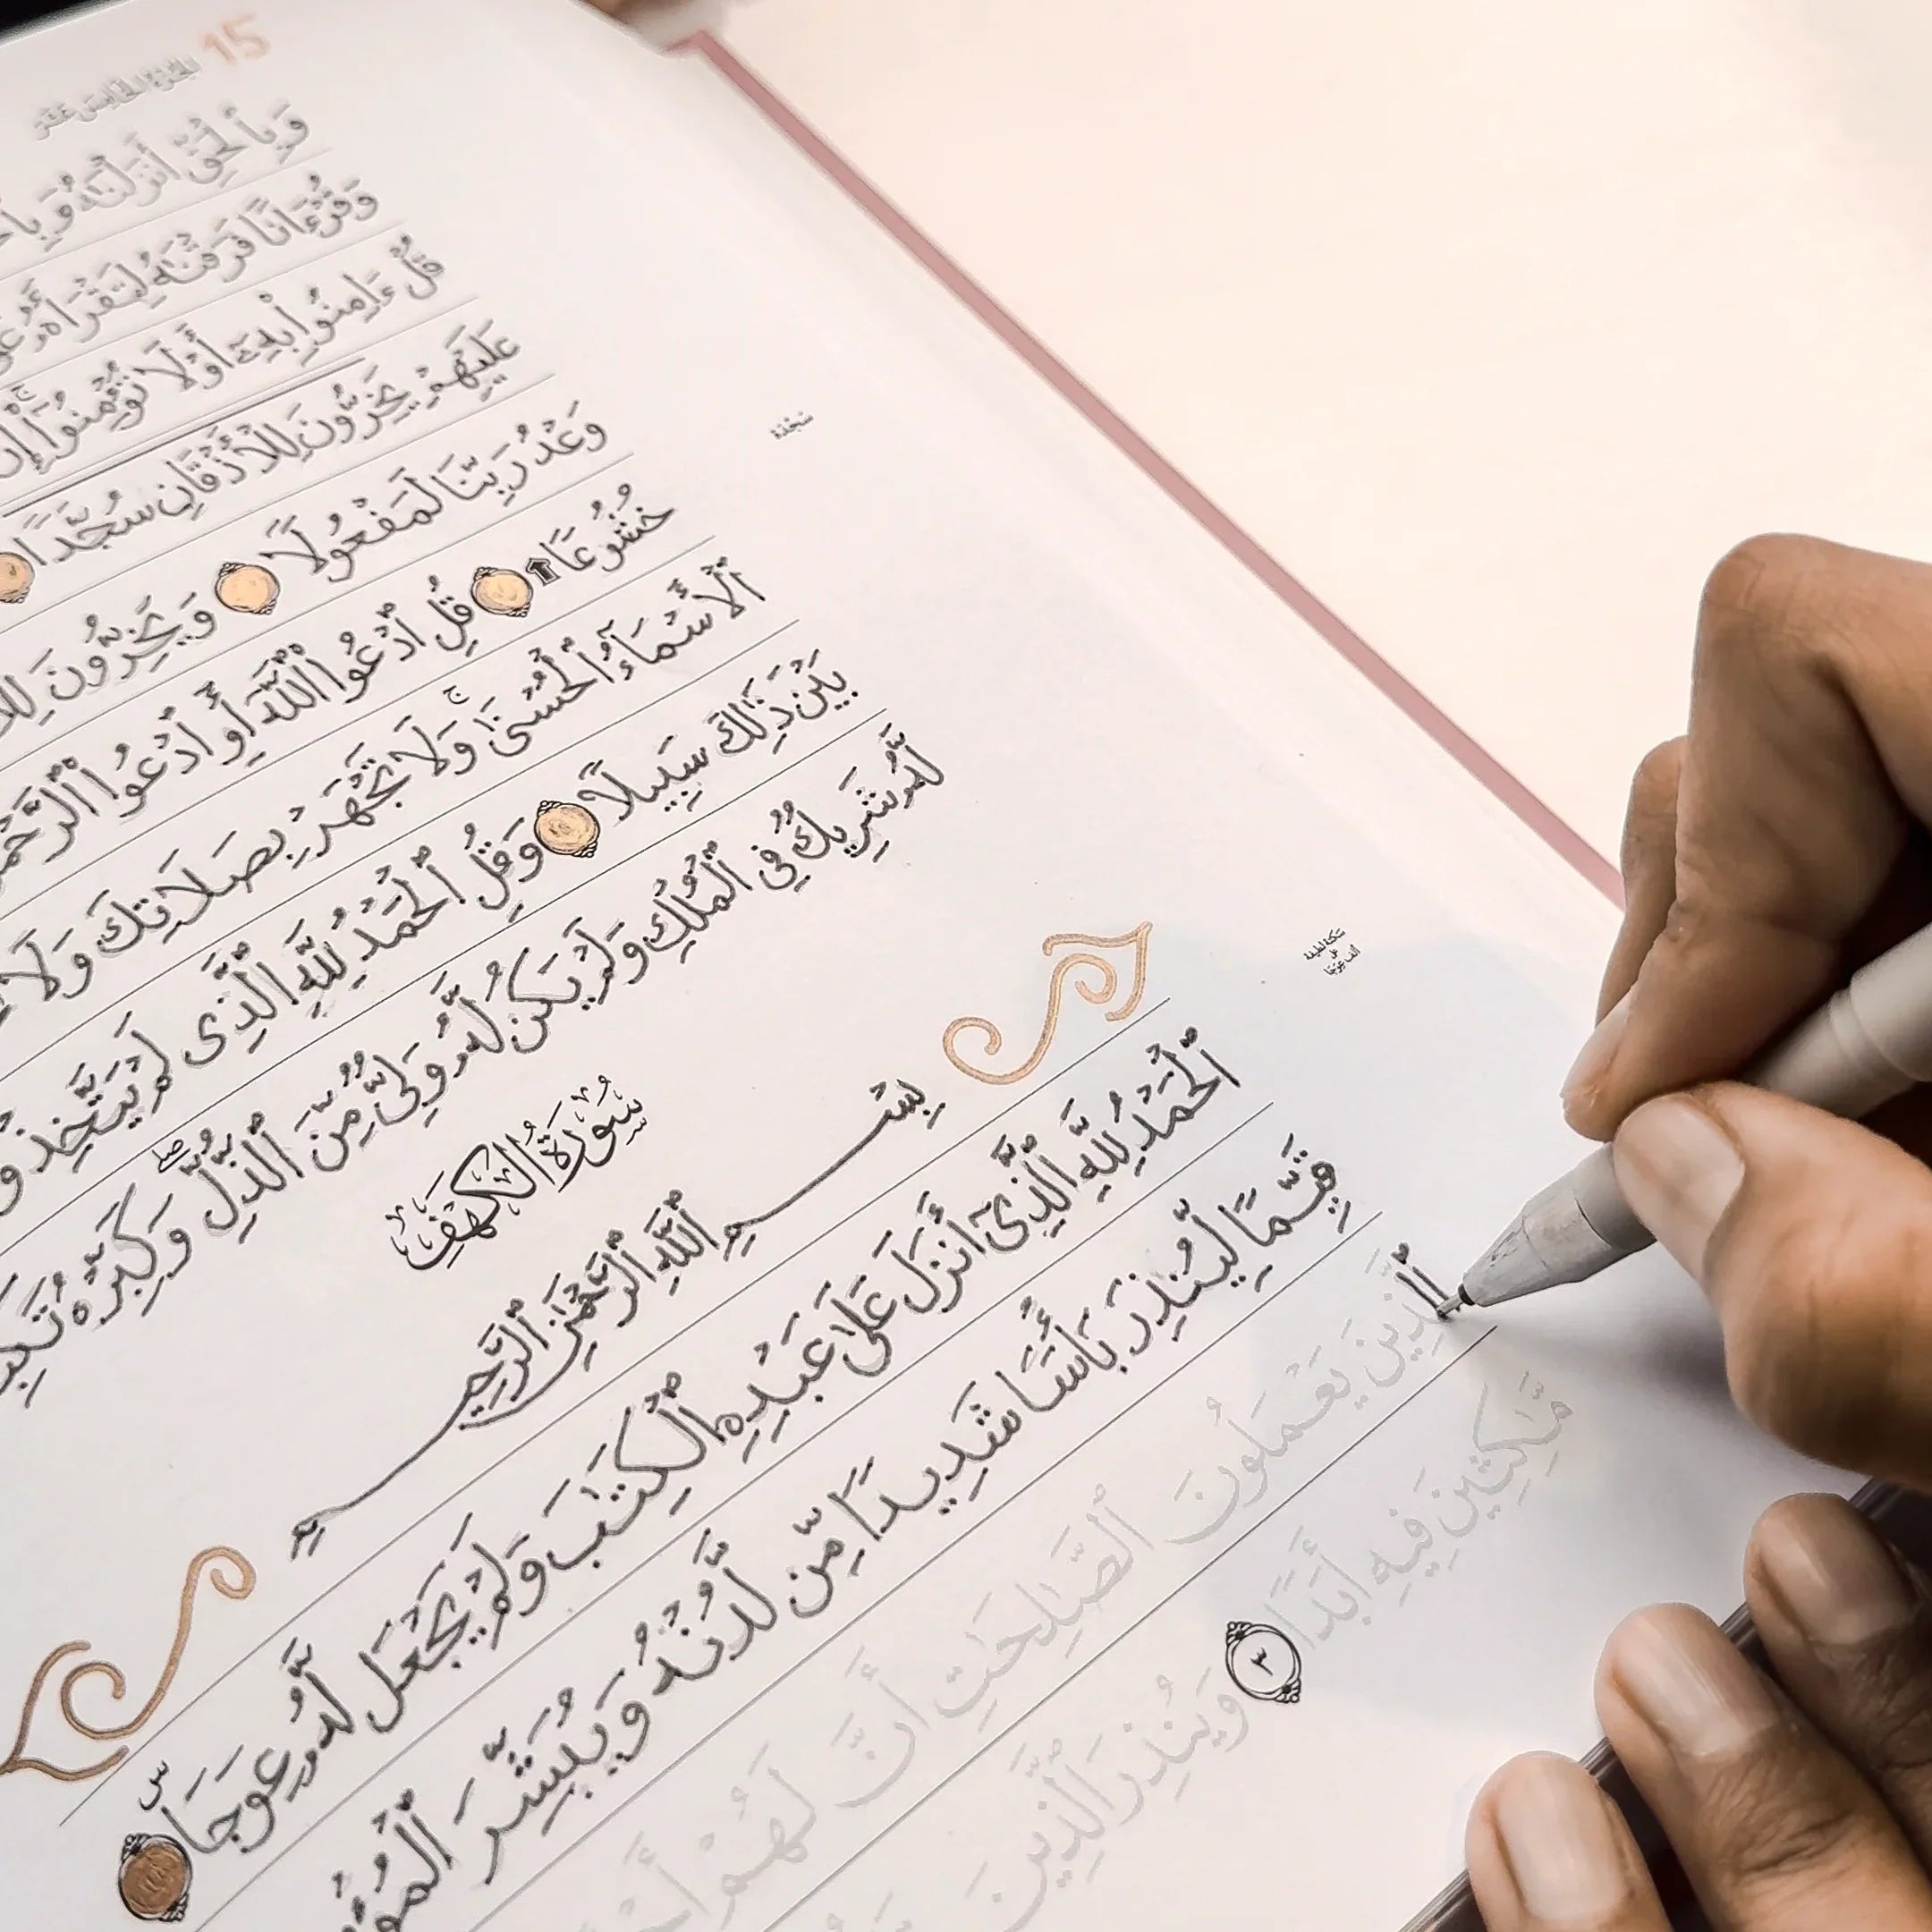 15 الجزء الخامس عشر
وَبِٱلْحَقِّ أَنزَلْنَٰهُ وَبِٱ
وَقُرْءَانًا فَرَقْنَٰهُ لِتَقْرَأَهُۥ
قُلْ ءَامِنُوا۟ بِهِۦٓ أَوْ لَا تُؤْمِنُوٓا۟ ۚ إِنَّ
عَلَيْهِمْ يَخِرُّونَ لِلْأَذْقَانِ سُجَّدًا
وَعْدُ رَبِّنَا لَمَفْعُولًا وَيَخِرُّونَ
خُشُوعًا قُلِ ٱدْعُوا۟ ٱللَّهَ أَوِ ٱدْعُوا۟ ٱلرَّحْمَ
ٱلْأَسْمَآءُ ٱلْحُسْنَىٰ ۚ وَلَا تَجْهَرْ بِصَلَاتِكَ وَلَا
بَيْنَ ذَٰلِكَ سَبِيلًا وَقُلِ ٱلْحَمْدُ لِلَّهِ ٱلَّذِى لَمْ يَتَّخِذْ
لَّهُۥ شَرِيكٌ فِى ٱلْمُلْكِ وَلَمْ يَكُن لَّهُۥ وَلِىٌّ مِّنَ ٱلذُّلِّ ۖ وَكَبِّرْهُ
سجدة
سُورَةُ الكَهْفِ
بِسْمِ ٱللَّهِ ٱلرَّحْمَٰنِ ٱلرَّحِيمِ
ٱلْحَمْدُ لِلَّهِ ٱلَّذِىٓ أَنزَلَ عَلَىٰ عَبْدِهِ ٱلْكِتَٰبَ وَلَمْ يَجْعَل لَّهُۥ عِوَجَا ۜ
سكتة لطيفة
على
ألف عوجا
قَيِّمًا لِّيُنذِرَ بَأْسًا شَدِيدًا مِّن لَّدُنْهُ وَيُبَشِّرَ
ٱلَّذِينَ يَعْمَلُونَ ٱلصَّٰلِحَٰتِ أَنَّ لَهُمْ
مَّٰكِثِينَ فِيهِ أَبَدًا ٣ وَيُنذِرَ ٱلَّذِينَ